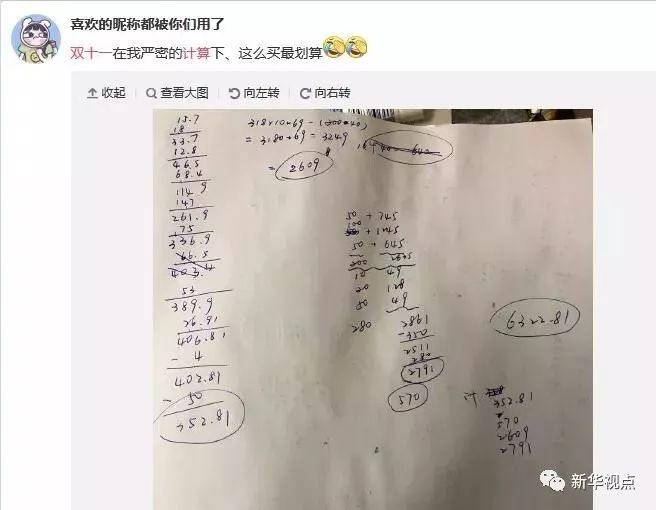 喜欢的昵称都被你们用了
双十一在我严密的计算下、这么买最划算
收起 查看大图 向左转 向右转
15.7
18
33.7
12.8
46.5
68.4
114.9
147
261.9
75
336.9
66.5
403.4
53
389.9
26.91
406.81
- 4
402.81
- 50
352.81
318×10+69-(300+40)
= 3180+69 = 3249
= 2609
50 + 745
100 + 1245
50 + 645
200 2635
10 49
20 128
50 49
280 2861
-350
2511
280
2791
570
6322.81
计 352.81
570
2609
2791
新华视点